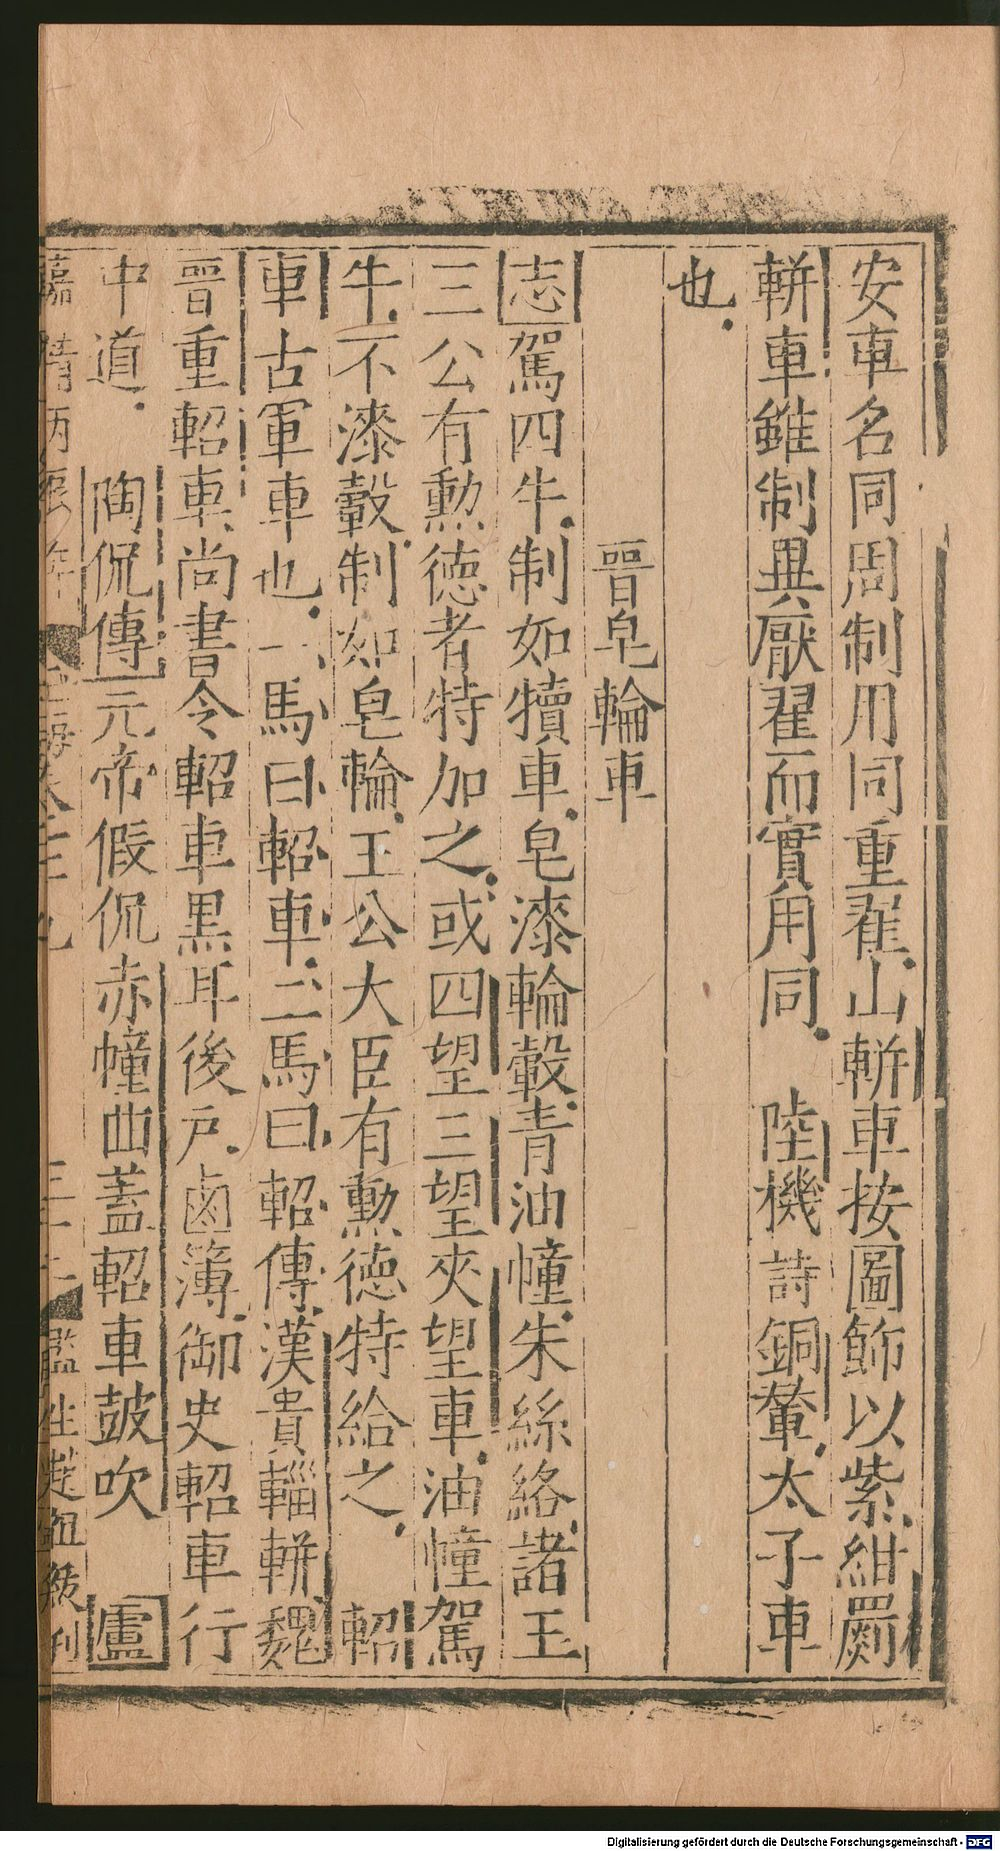 安車名同周制用同重翟山軿車按圖飾以紫紺罽
軿車雖制異厭翟而實用同　陸機詩銅輦太子車
也
晉皂輪車
志駕四牛制如犢車皂漆輪轂青油幢朱絲絡諸王
三公有勲德者特加之或四望三望夾望車油幢駕
牛不漆轂制如皂輪王公大臣有勲德特給之　軺
車古軍車也一馬曰軺車二馬曰軺傳漢貴輜軿魏
晉重軺車尚書令軺車黒耳後戸鹵簿御史軺車行
中道　陶侃傳元帝假侃赤幢曲蓋軺車鼓吹　盧
嘉靖丙辰年　玉海卷七十九　監生趙
Digitalisierung gefördert durch die Deutsche Forschungsgemeinschaft - DFG